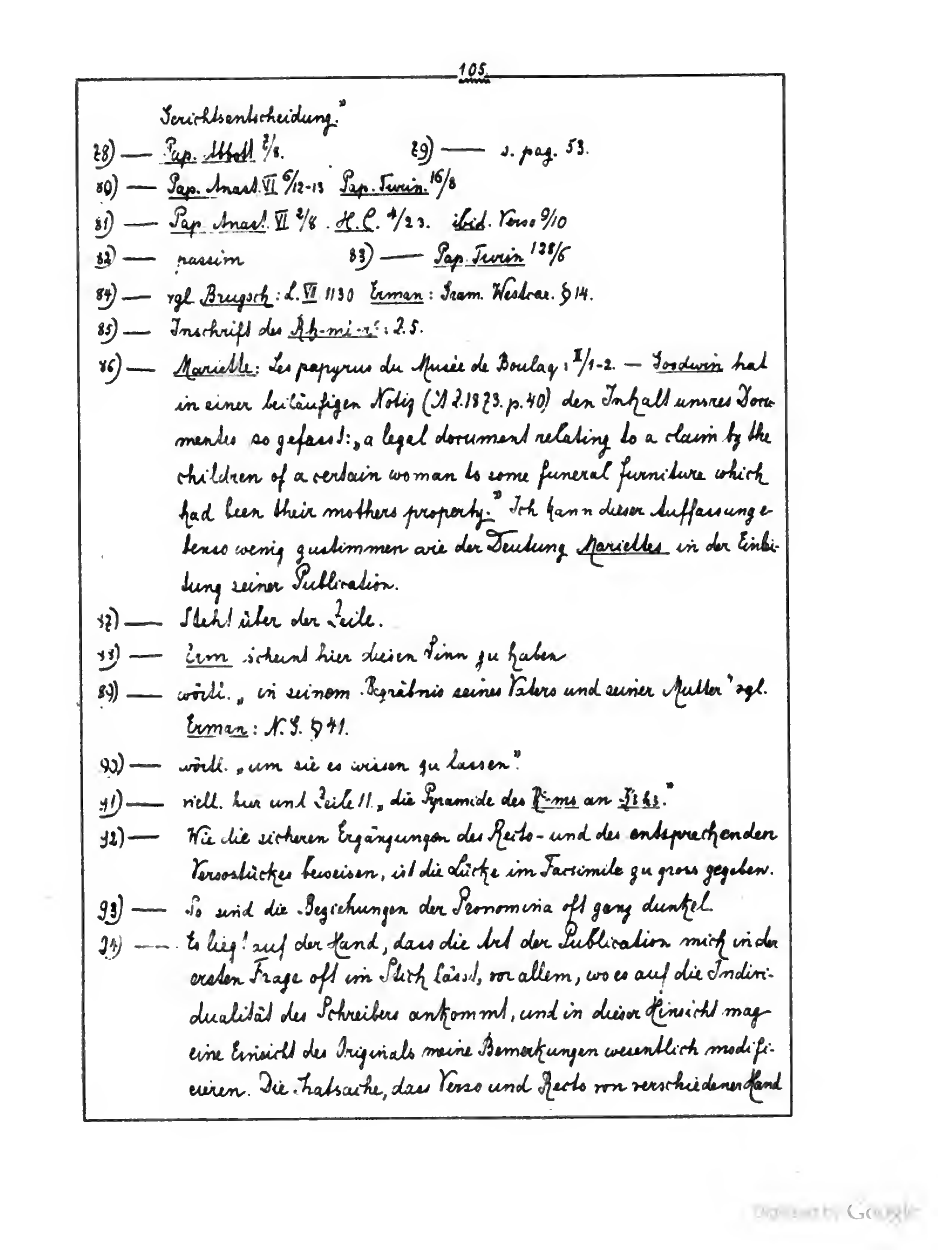 105.
Gerichtsentscheidung."
78) — Pap. Abbott 2/8. 79) — s. pag. 53.
80) — Pap. Anast. VI 6/12-13 Pap. Turin. 16/8
81) — Pap. Anast. VI 2/8. H.C. 4/23. ibid. Verso 9/10
82) — passim 83) — Pap. Turin 128/6
84) — vgl. Brugsch: L. VII 1130 Erman: Gram. Westcar. § 14.
85) — Inschrift des Rḫ-mi-rꜥ: Z. 5.
86) — Mariette: Les papyrus du Musée de Boulaq: II/1-2. — Goodwin hat
in einer beiläufigen Notiz (ÄZ. 1873. p. 40) den Inhalt unsres Docu-
mentes so gefasst: „a legal document relating to a claim by the
children of a certain woman to some funeral furniture which
had been their mothers property." Ich kann dieser Auffassung e-
benso wenig zustimmen wie der Deutung Mariettes in der Einlei-
tung seiner Publication.
87) — Steht über der Zeile.
88) — scheint hier diesen Sinn zu haben
89) — wörtl. „in seinem Begräbnis seines Vaters und seiner Mutter" vgl.
Erman: N.G. § 41.
90) — wörtl. „um sie es wissen zu lassen".
91) — viell. hier und Zeile 11. „die Pyramide des an
92) — Wie die sicheren Ergänzungen des Recto- und des entsprechenden
Versostückes beweisen, ist die Lücke im Facsimile zu gross gegeben.
93) — So sind die Beziehungen der Pronomina oft ganz dunkel.
94) — Es liegt auf der Hand, dass die Art der Publication mich in der
ersten Frage oft im Stich lässt, vor allem, wo es auf die Indivi-
dualität des Schreibers ankommt, und in dieser Hinsicht mag
eine Einsicht des Originals meine Bemerkungen wesentlich modifi-
cieren. Die Thatsache, dass Verso und Recto von verschiedener Hand
Digitized by Google